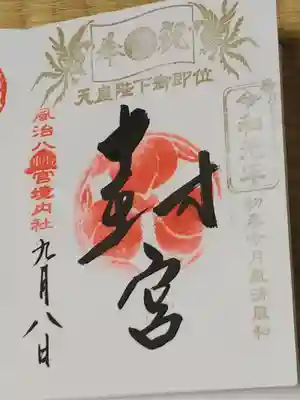 奉祝
天皇陛下御即位
令和元年
初春令月気淑風和
封宮
風治八幡宮境内社
九月八日